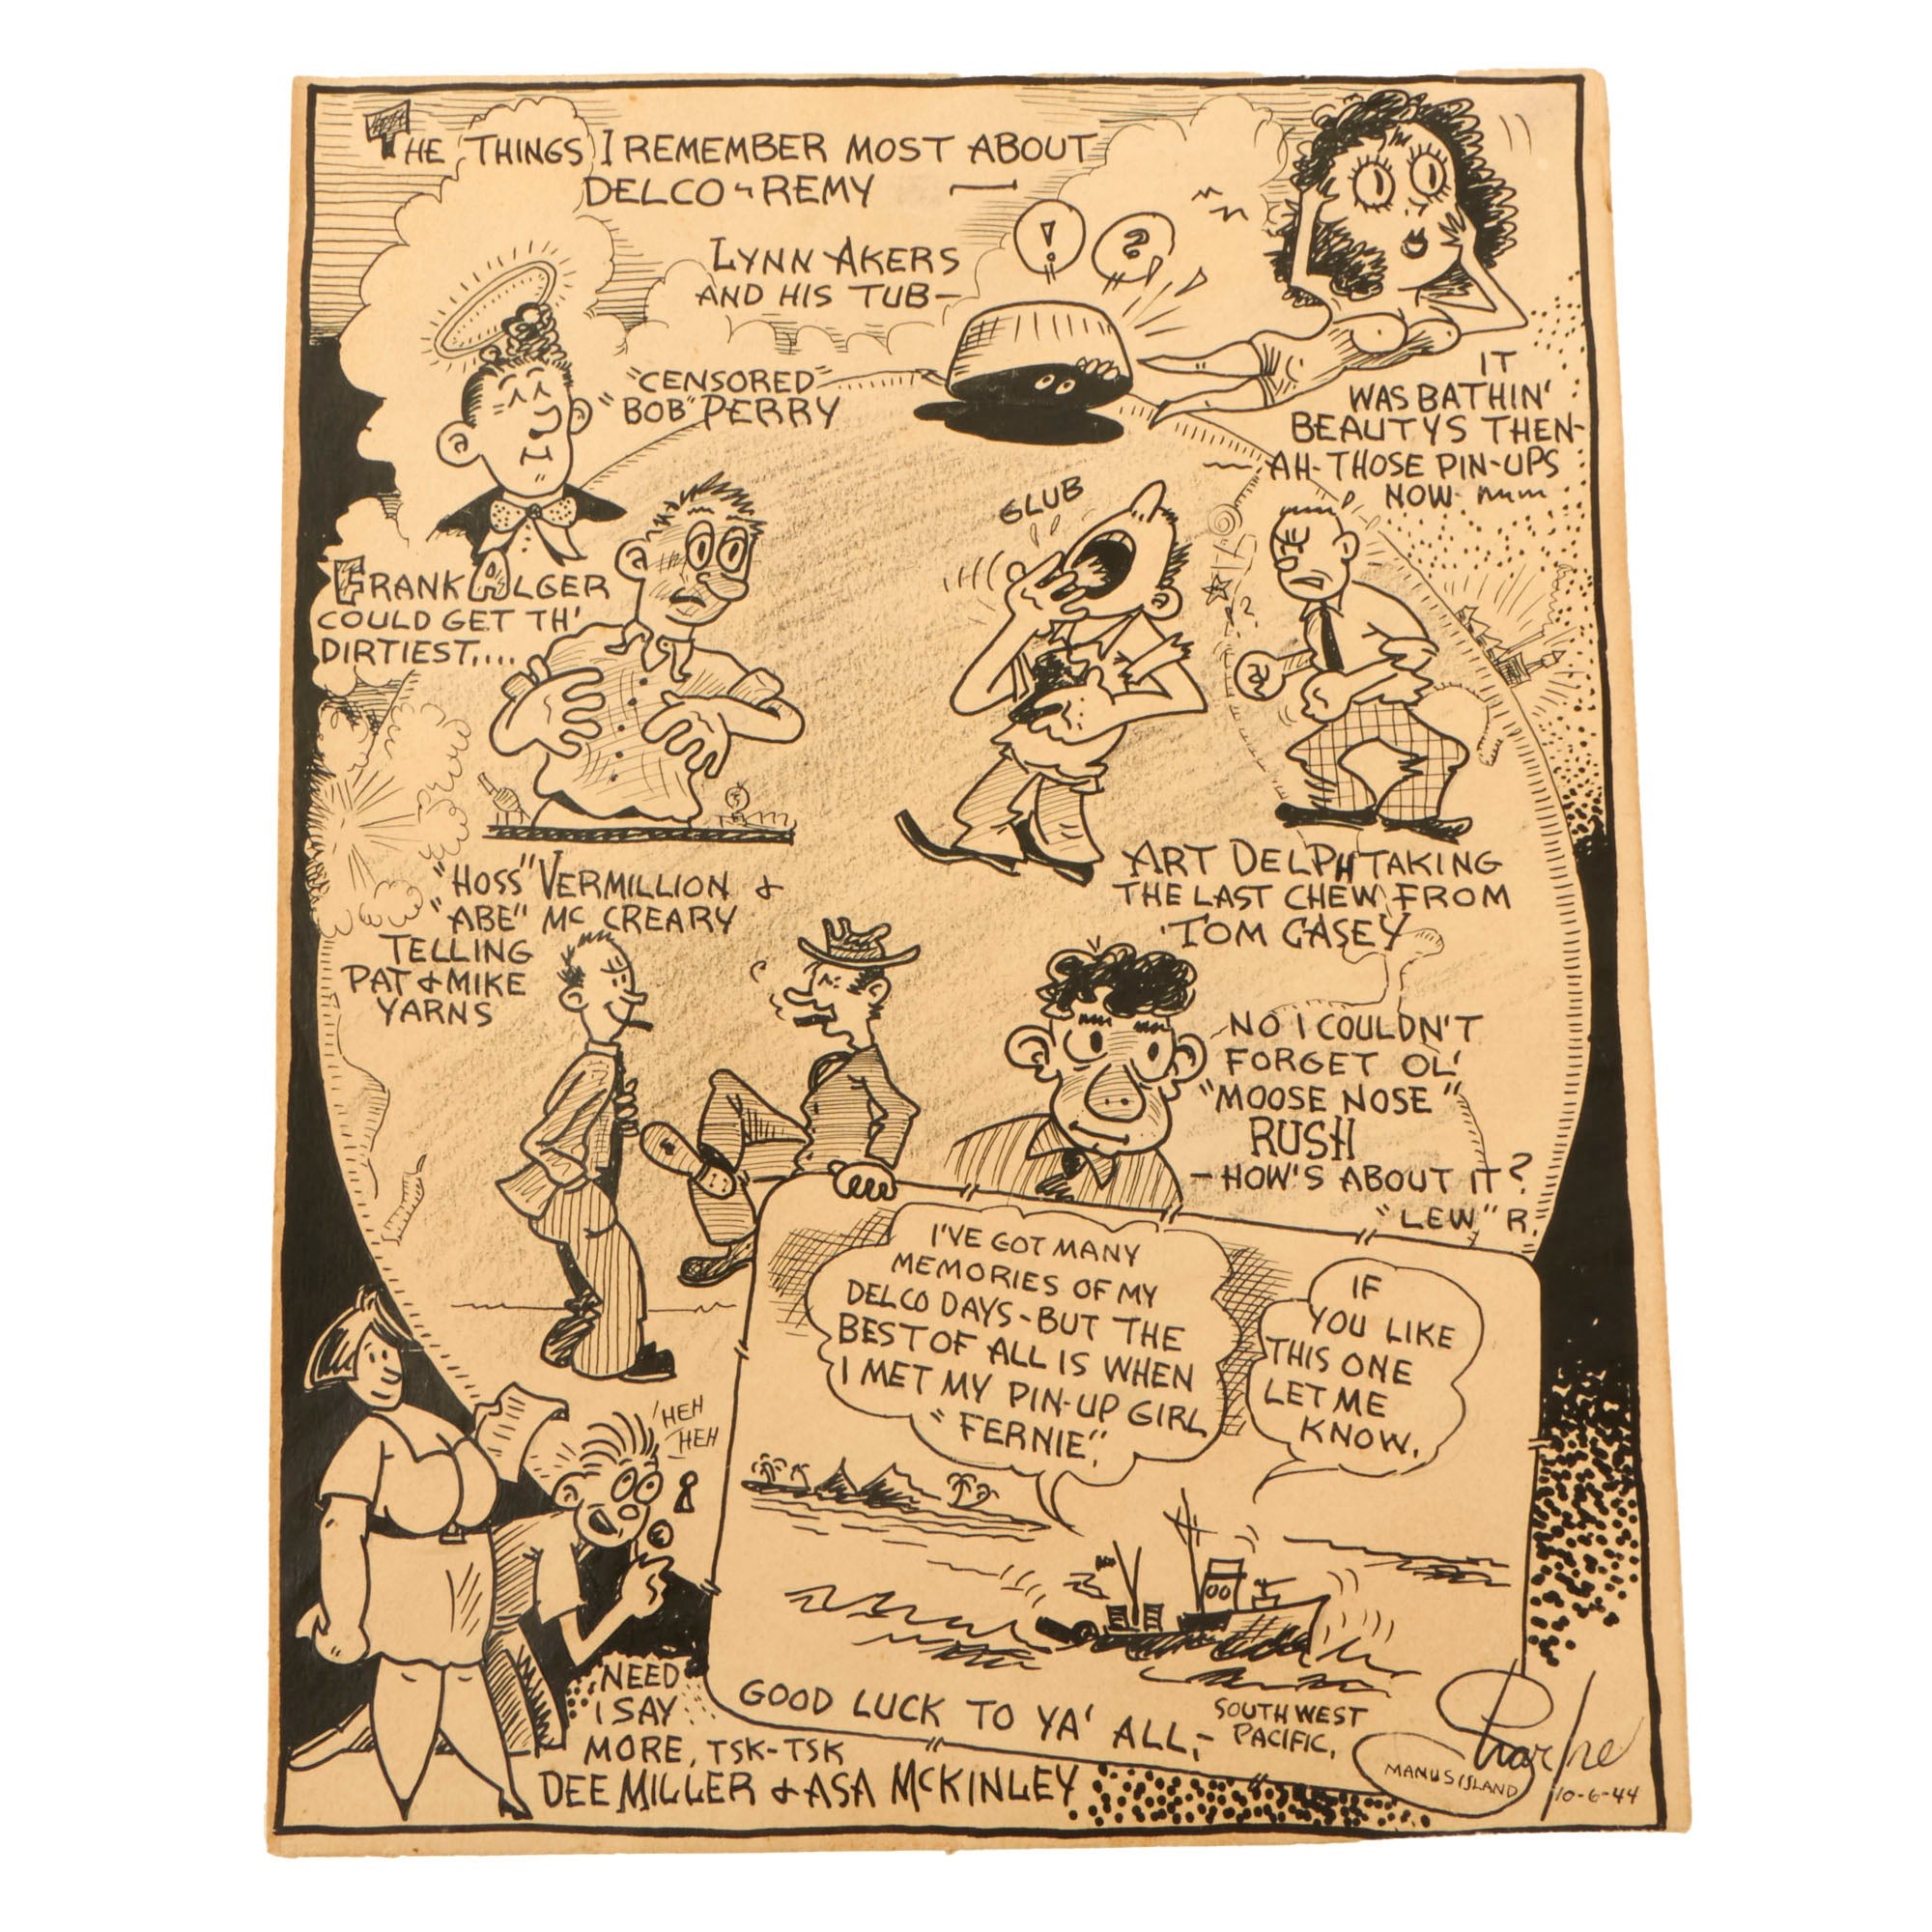 THE THINGS I REMEMBER MOST ABOUT
DELCO-REMY —
LYNN AKERS
AND HIS TUB-
! ?
"CENSORED"
"BOB" PERRY
IT
WAS BATHIN'
BEAUTYS THEN-
AH-THOSE PIN-UPS
NOW mum
GLUB
FRANK ALGER
COULD GET TH'
DIRTIEST....
ART DELPH TAKING
THE LAST CHEW FROM
TOM CASEY
"HOSS" VERMILLION &
"ABE" MC CREARY
TELLING
PAT & MIKE
YARNS
NO I COULDN'T
FORGET OL'
"MOOSE NOSE"
RUSH
-HOW'S ABOUT IT?
"LEW" R.
I'VE GOT MANY
MEMORIES OF MY
DELCO DAYS-BUT THE
BEST OF ALL IS WHEN
I MET MY PIN-UP GIRL
"FERNIE".
IF
YOU LIKE
THIS ONE
LET ME
KNOW.
HEH
HEH
NEED
I SAY
MORE, TSK-TSK
DEE MILLER & ASA MCKINLEY
GOOD LUCK TO YA' ALL,-
SOUTHWEST
PACIFIC,
MANUS ISLAND
10-6-44